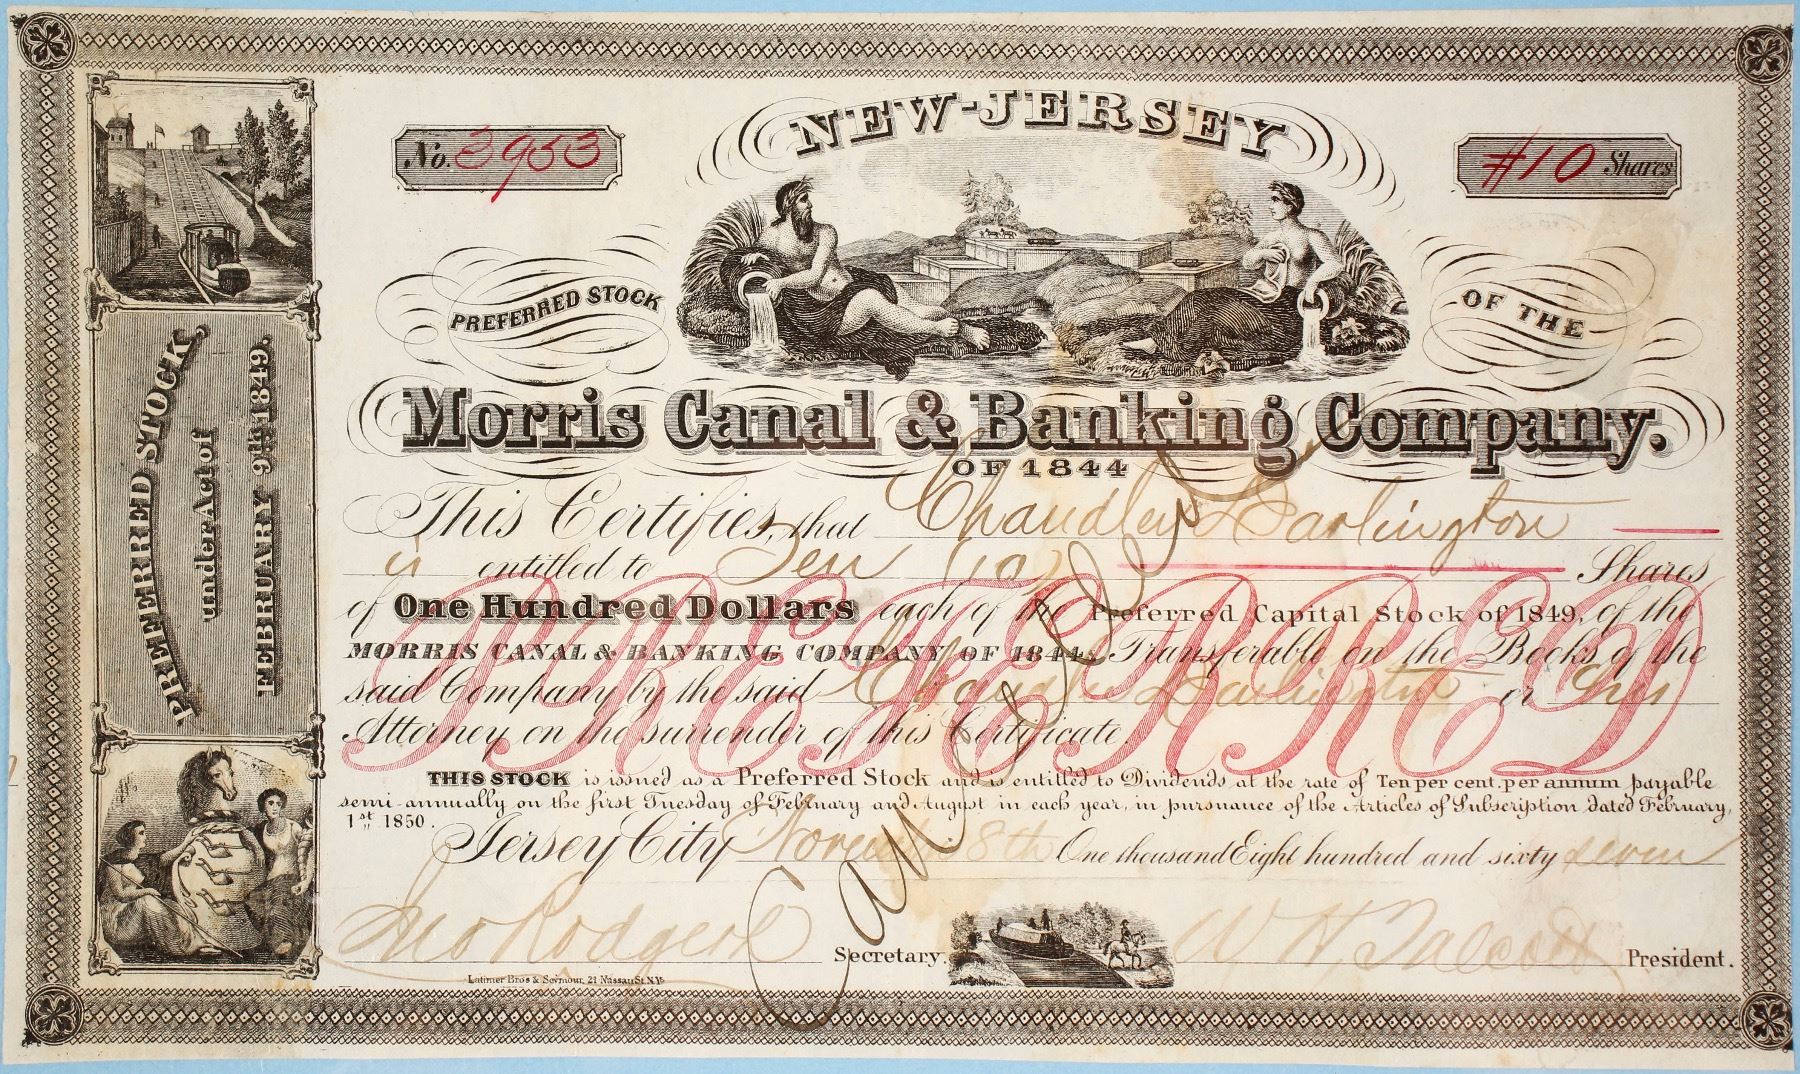 No. 3953
NEW-JERSEY
#10 Shares
PREFERRED STOCK
OF THE
Morris Canal & Banking Company.
OF 1844
This Certifies, that Chandley Darlington
is entitled to Ten (10) Shares
of One Hundred Dollars each of the Preferred Capital Stock of 1849, of the
MORRIS CANAL & BANKING COMPANY OF 1844, Transferable on the Books of the
said Company by the said Chandley Darlington or his
Attorney on the surrender of this Certificate.
PREFERRED
Cancelled
THIS STOCK is issued as a Preferred Stock and is entitled to Dividends at the rate of Ten per cent. per annum payable
semi-annually on the first Tuesday of February and August in each year, in pursuance of the Articles of Subscription dated February,
1st 1850.
Jersey City November 8th One thousand Eight hundred and sixty seven
Jno Rodgers Secretary.
W H Talcott President.
Latimer Bros & Seymour, 21 Nassau St. N.Y.
PREFERRED STOCK
under Act of
FEBRUARY 9th 1849.